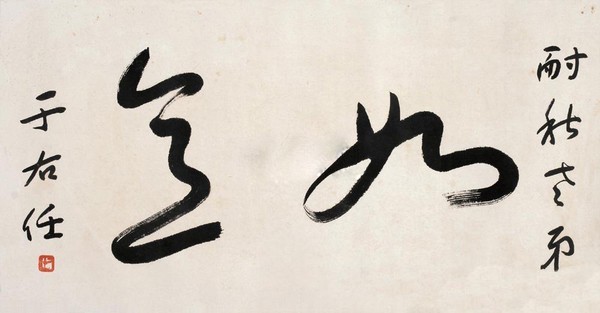 耐秋老弟
如意
于右任